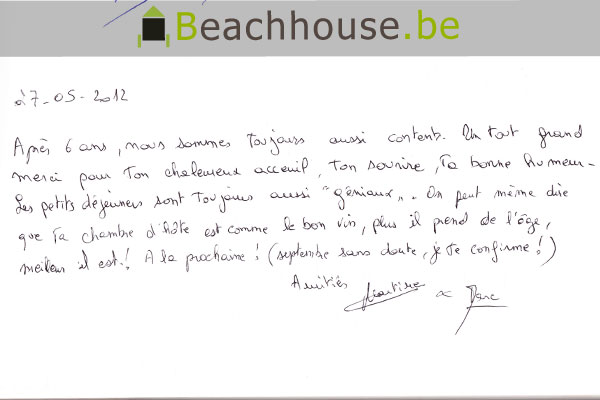 Beachhouse.be
27-05-2012
Après 6 ans, nous sommes toujours aussi contents. Un tout grand
merci pour ton chaleureux acceuil, ton sourire, ta bonne humeur.
Les petits déjeuners sont toujours aussi "géniaux". On peut même dire
que ta chambre d'hôte est comme le bon vin, plus il prend de l'âge,
meilleur il est! A la prochaine! (septembre sans doute, je te confirme!)
Amitiés
Martine & Marc